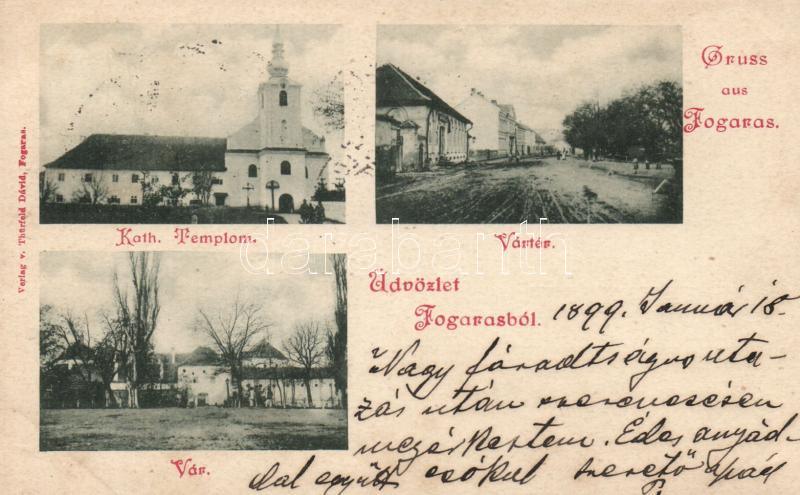 Gruss
aus
Fogaras.
Verlag v. Thierfeld Dávid, Fogaras.
Kath. Templom.
Vártér.
darabanth
Üdvözlet
Fogarasból.
1899. Január 18.
Nagy fáradtságos uta-
zás után szerencsésen
megérkeztem. Édes anyád-
dal együtt csókol szerető apád
Vár.